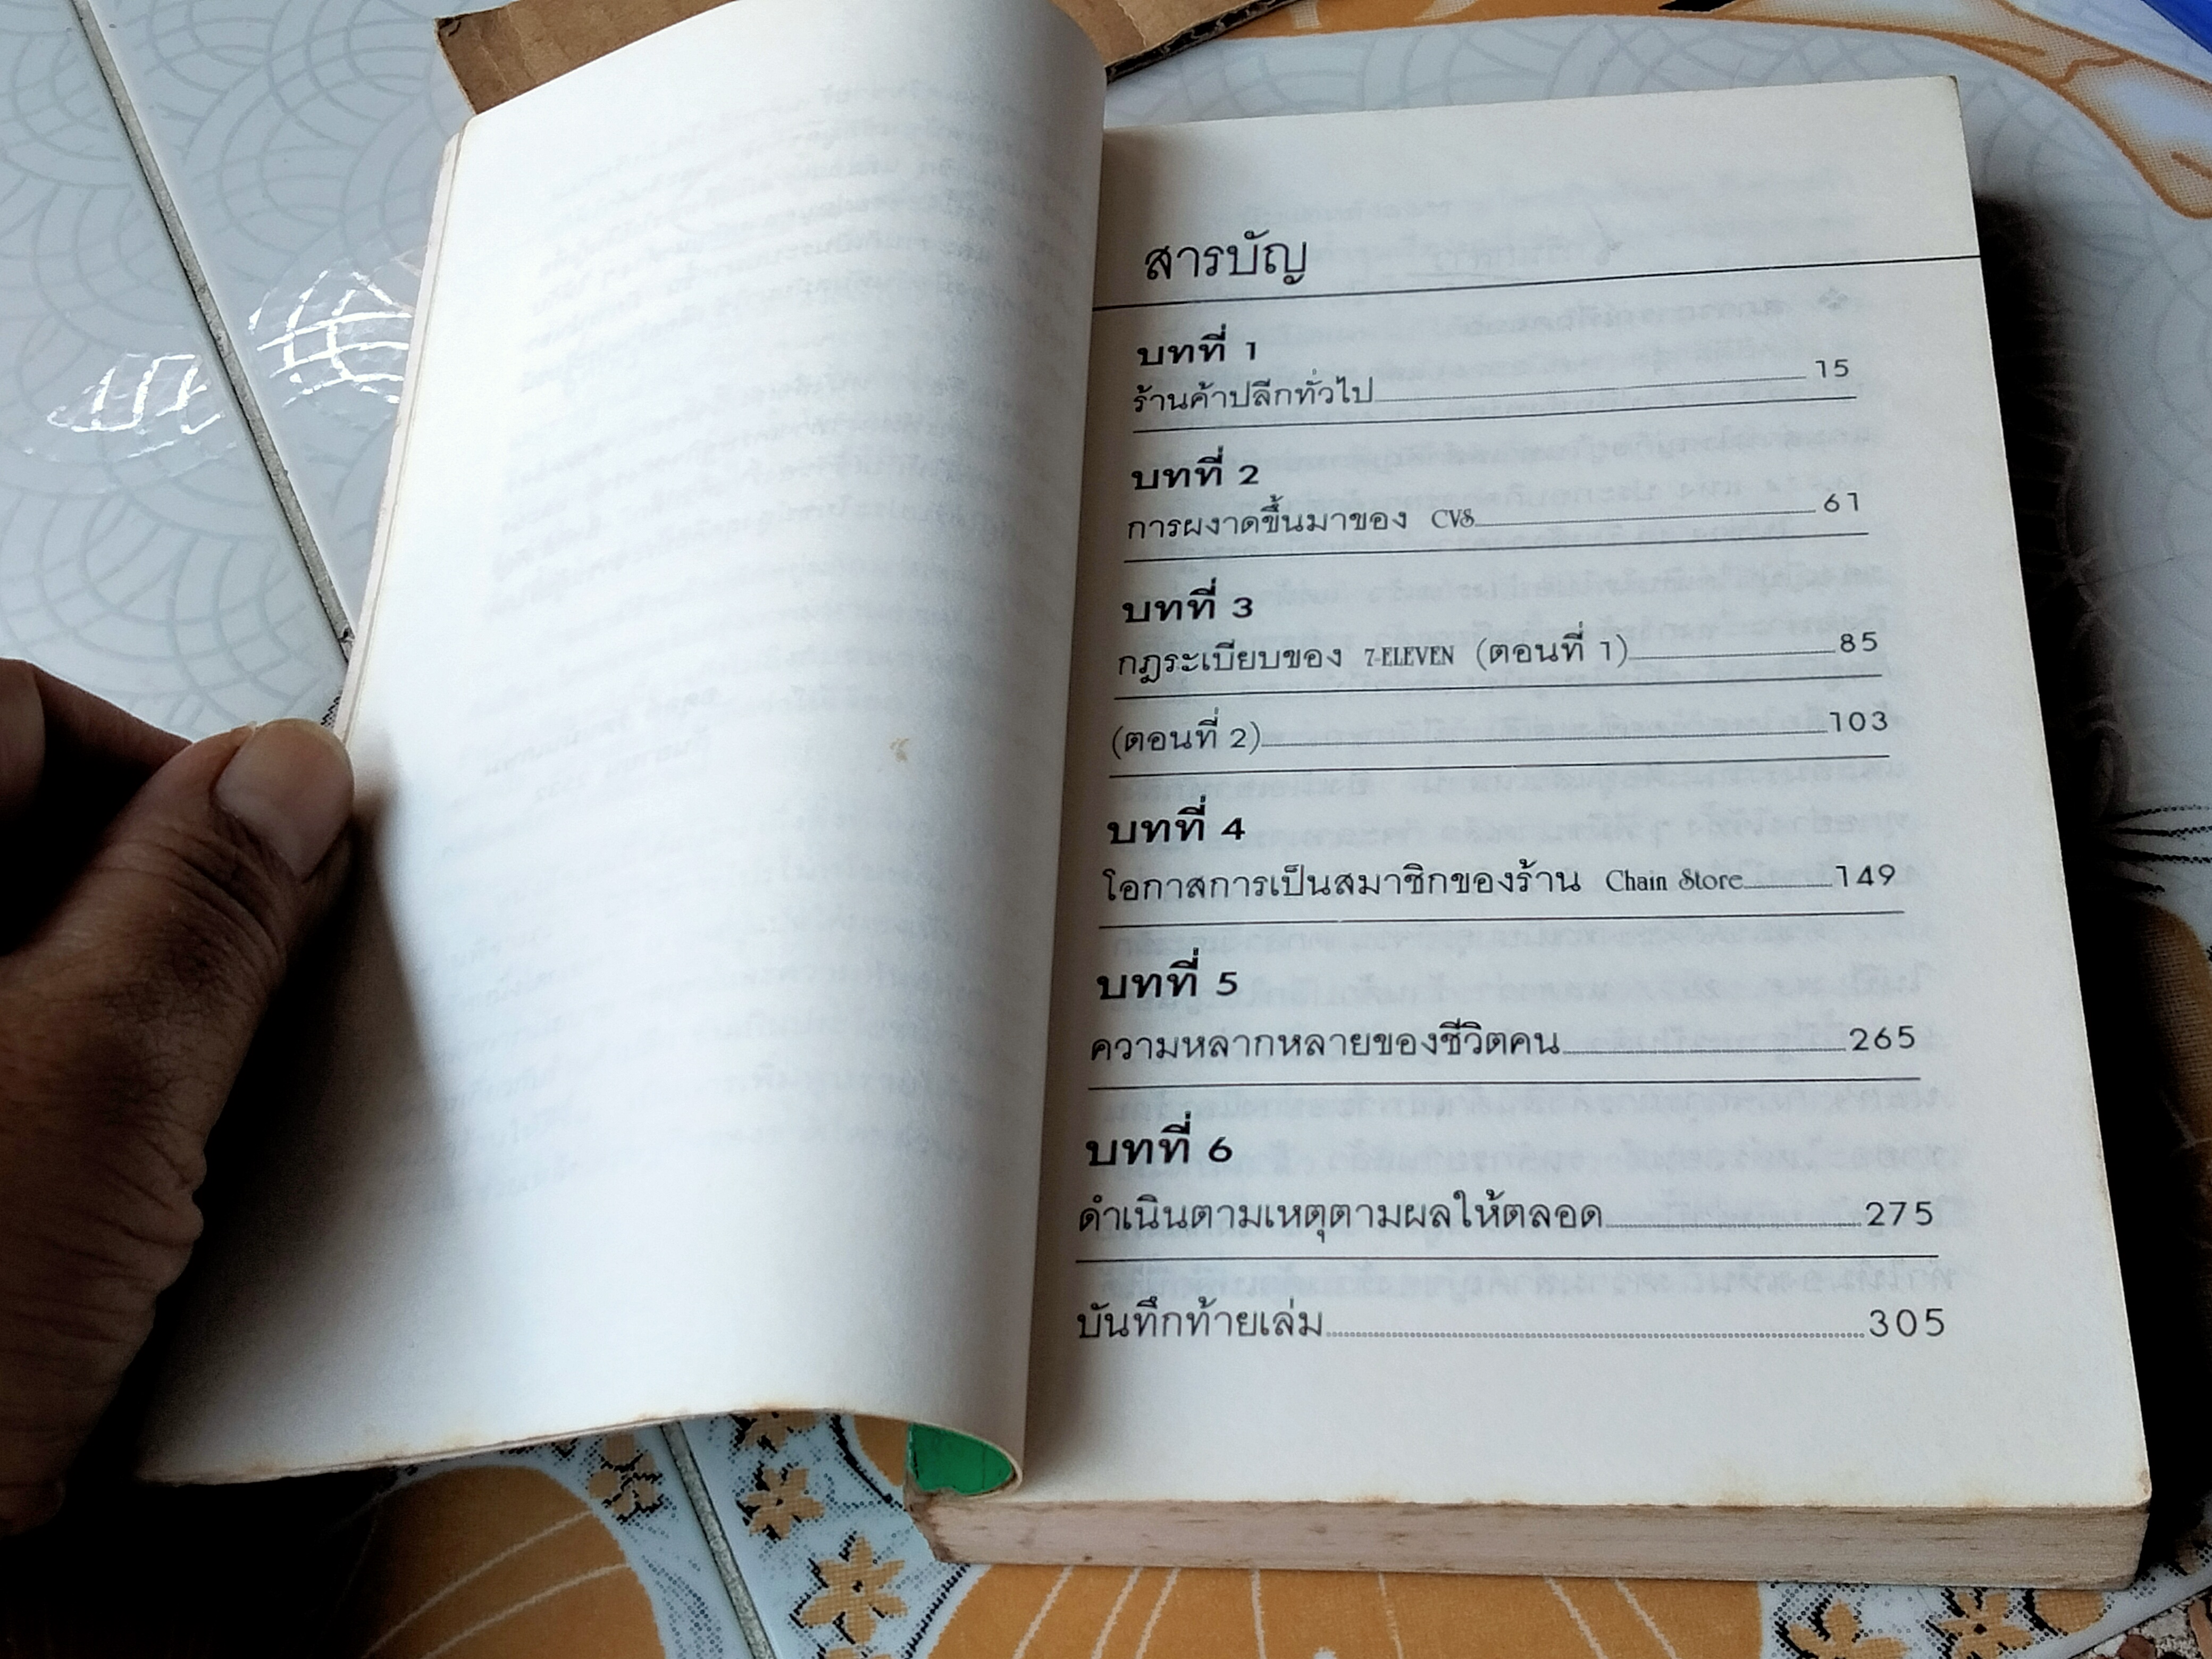 สารบัญ
บทที่ 1
ร้านค้าปลีกทั่วไป 15
บทที่ 2
การผงาดขึ้นมาของ CVS 61
บทที่ 3
กฎระเบียบของ 7-ELEVEN (ตอนที่ 1) 85
(ตอนที่ 2) 103
บทที่ 4
โอกาสการเป็นสมาชิกของร้าน Chain Store 149
บทที่ 5
ความหลากหลายของชีวิตคน 265
บทที่ 6
ดำเนินตามเหตุตามผลให้ตลอด 275
บันทึกท้ายเล่ม 305